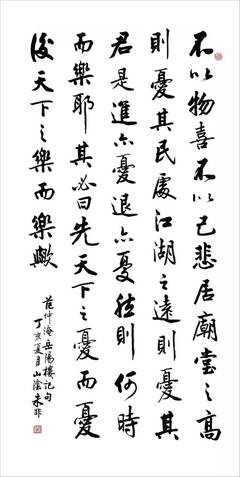 不以物喜不以己悲居廟堂之高
則憂其民處江湖之遠則憂其
君是進亦憂退亦憂然則何時
而樂耶其必曰先天下之憂而憂
後天下之樂而樂歟
范仲淹岳陽樓記句
丁亥夏月山陰朱非